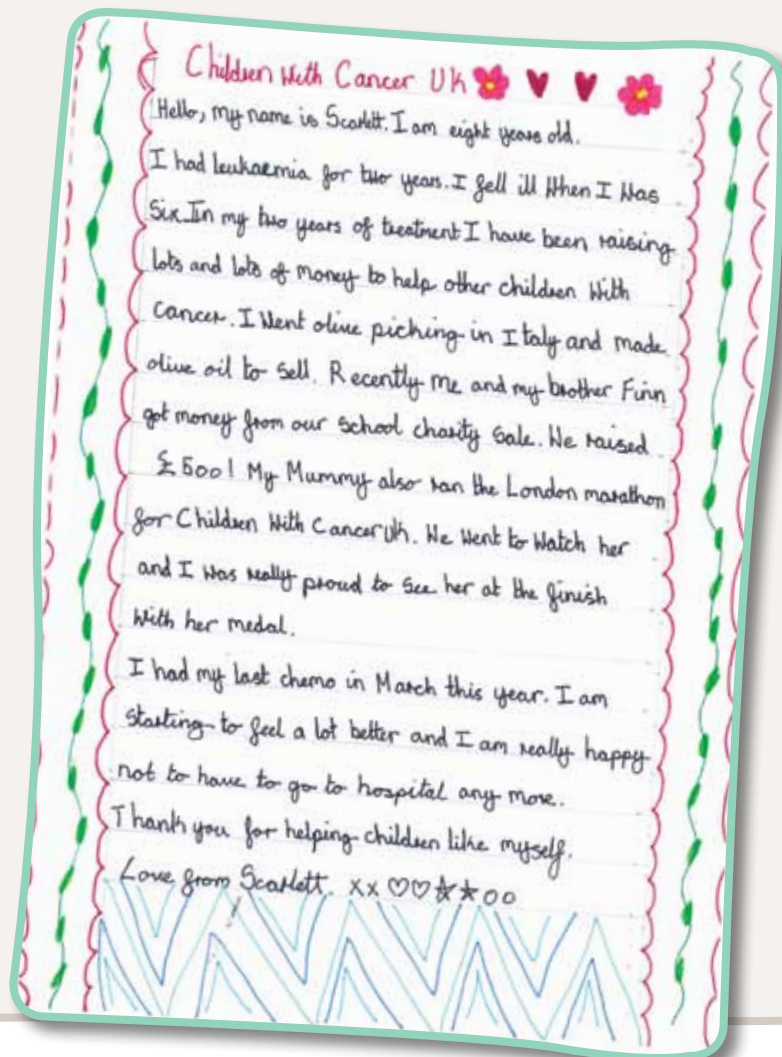 Children With Cancer UK
Hello, my name is Scarlett. I am eight years old.
I had leukaemia for two years. I fell ill When I Was
Six. In my two years of treatment I have been raising
lots and lots of money to help other children With
Cancer. I Went olive picking in Italy and made
olive oil to sell. Recently me and my brother Finn
got money from our school charity sale. We raised
£500! My Mummy also ran the London marathon
for Children With Cancer Uk. We Went to Watch her
and I Was really proud to see her at the finish
With her medal.
I had my last chemo in March this year. I am
starting to feel a lot better and I am really happy
not to have to go to hospital any more.
Thank you for helping children like myself.
Love from Scarlett. xx ♡♡☆★oo